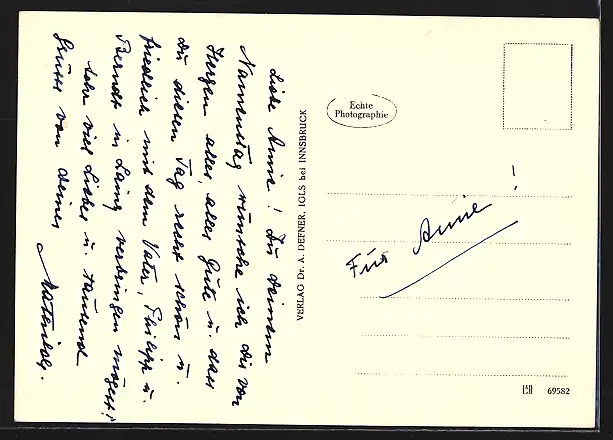 Liebe Annie! Zu Deinem
Namenstag wünsche ich Dir von
Herzen alles, alles Gute u. dass
Du diesen Tag recht schön u.
friedlich mit dem Vater, Philipp u.
Berndt in Lainz verbringen mögest!
Sehr viel Liebes u. tausend
Grüsse von Deiner
VERLAG Dr. A. DEFNER, IGLS bei INNSBRUCK
Echte
Photographie
Für Annie!
69582